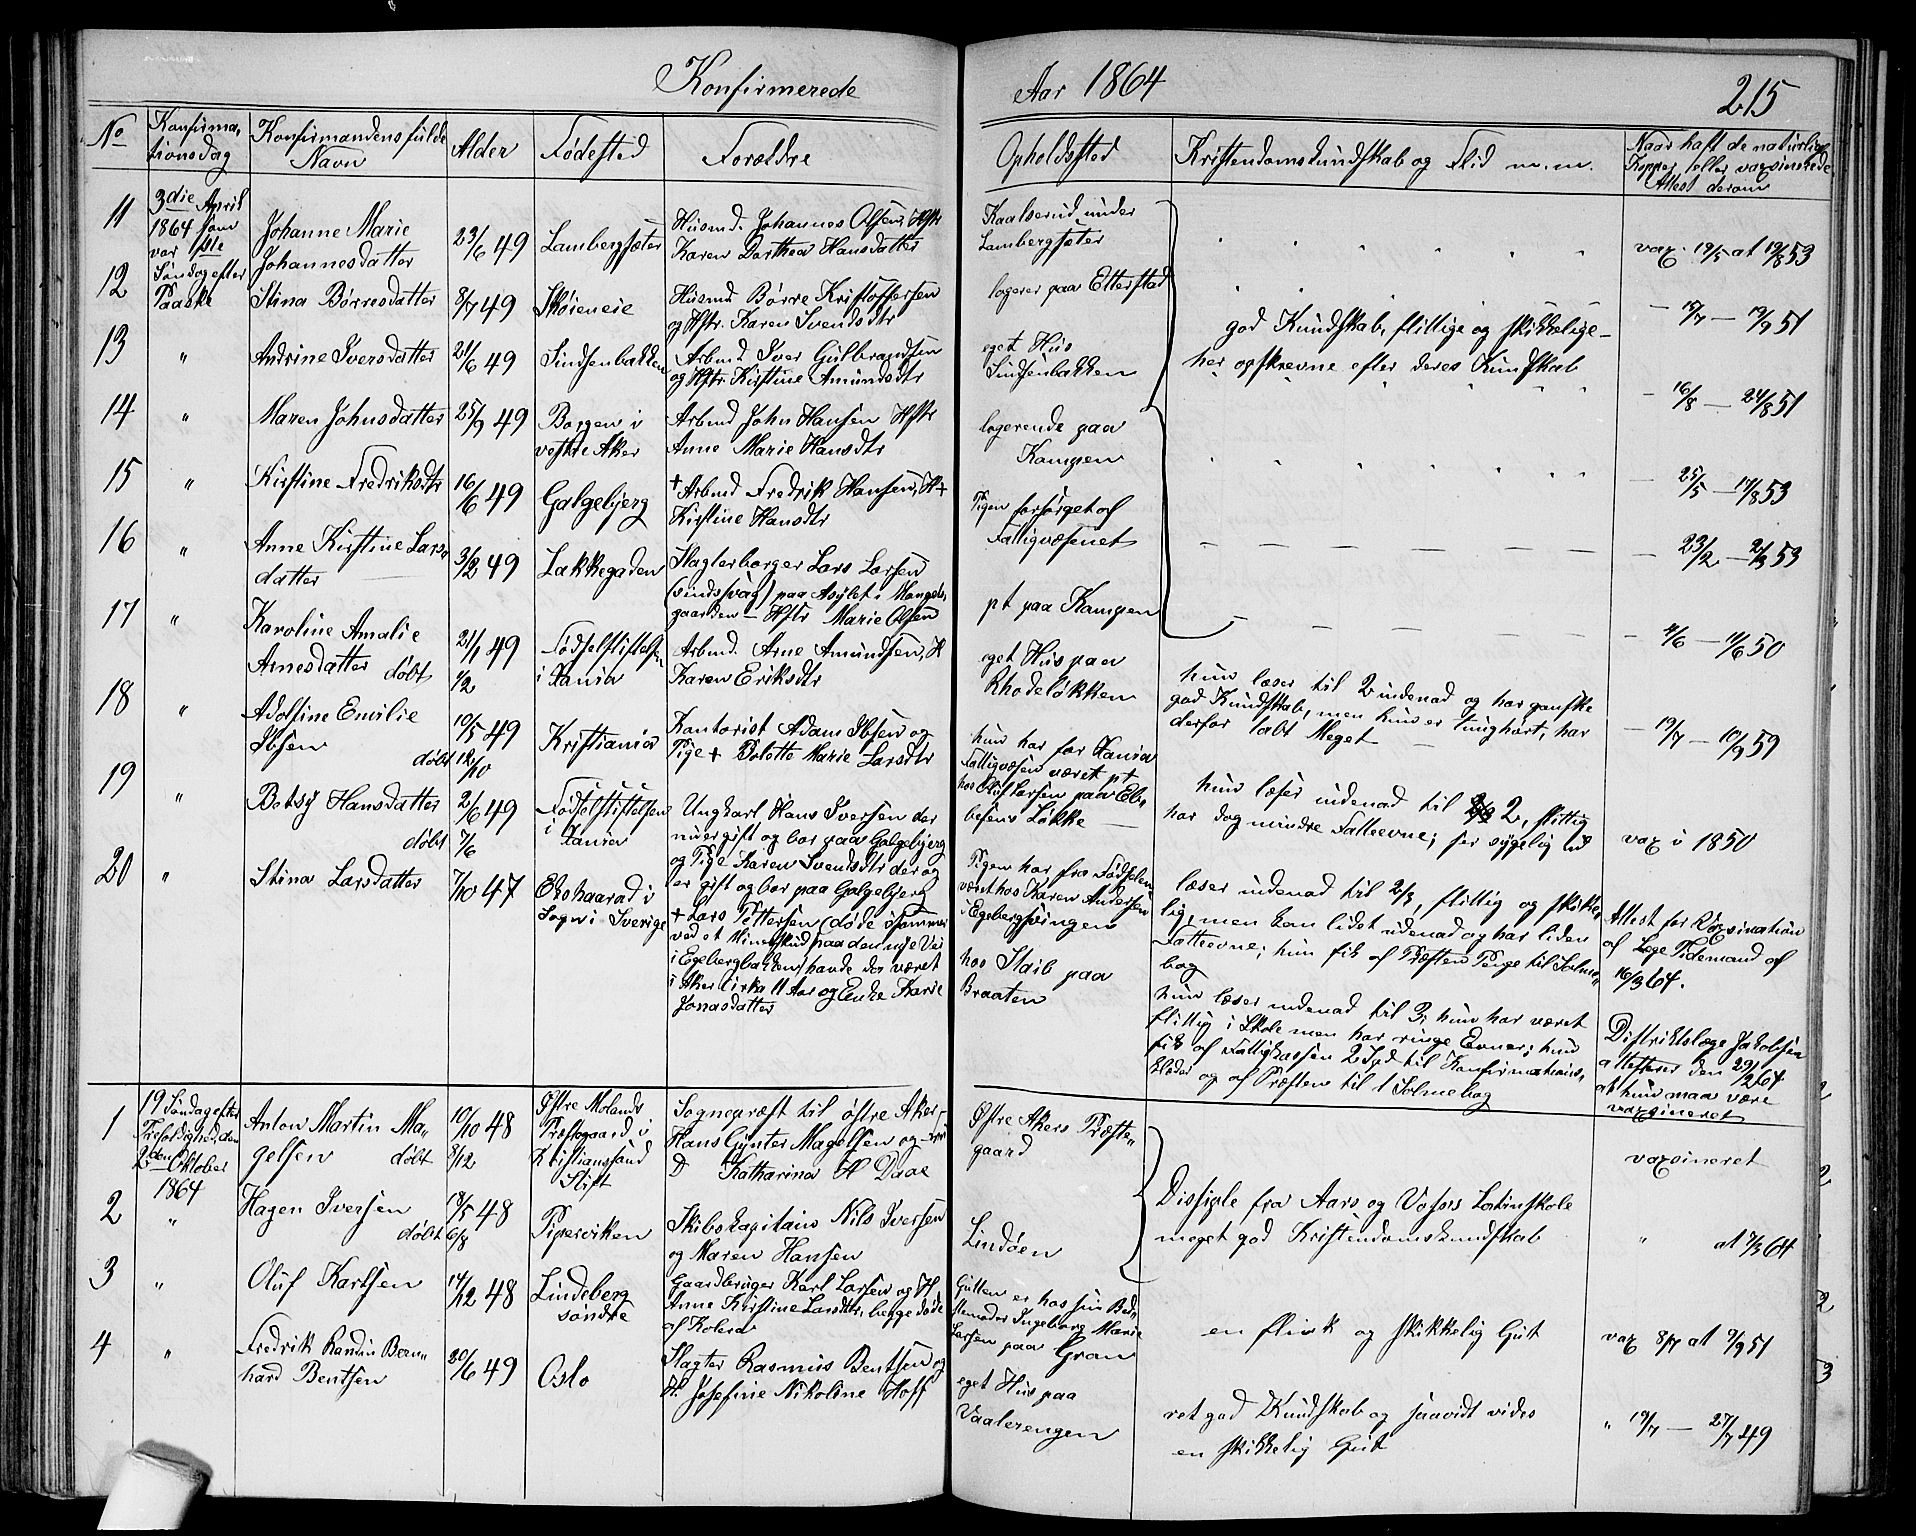 Konfirmerede
Aar 1864
215
No
Konfirma-
tionsdag
Konfirmandens fulde
Navn
Alder
Fødested
Forældre
Opholdssted
Kristendomskundskab og Flid m.m.
Naar haft de naturlige
Kopper, eller vaxsinerede
Attest derom
11
3die April
1864 som
var 1ste
Søndag efter
Paaske
Johanne Marie
Johannesdatter
23/6 49
Lambergsæter
Husmd. Johannes Olsen, Hstr
Karen Dorthea Hansdatter
Kaalserud under
Lambergsæter
vax. 19/5 at 19/8 53
12
Stina Børresdatter
8/7 49
Skøieneie
Husmd Børre Kristoffersen
og Hstr. Karen Svendsdtr
logerer paa Etterstad
god Kundskab, flittige og skikkelige -
her opskrevne efter deres Kundskab
13
"
Andrine Iversdatter
21/6 49
Sindsenbakken
Arbmd Iver Gulbrandsen
og Hstr. Kirstine Amundsdtr
eget Hus
Sindsenbakken
14
"
Maren Johnsdatter
25/9 49
Borgen i
vestre Aker
Arbmd John Hansen Hstr
Anne Marie Hansdtr
logerende paa
Kampen
— 16/8 — 24/8 51
15
"
Kirstine Fredriksdtr
16/6 49
Galgebjerg
+ Arbmd Fredrik Hansen, H+
Kirstine Hansdtr
Pigen forsørget af
Fattigvæsenet
— 25/5 — 17/8 53
16
"
Anne Kirstine Lars-
datter
3/2 49
Lakkegaden
Slagterborger Lars Larsen
(sindssvag) paa Asylet i Mangels-
gaarden — Hstr Marie Olsen
pt paa Kampen
— 23/2 — 2/3 53
17
"
Karoline Amalie
Arnesdatter døbt
21/1 49
1/2
Fødselsstiftelsen
i Xania
Arbmd. Arne Amundsen, H
Karen Eriksdtr
eget Hus paa
Rhodeløkken
hun læser til 2 indenad og har ganske
god Kundskab, men hun er tunghørt, har
derfor tabt Meget —
— 4/6 — 11/6 50
18
"
Adolfine Emilie
Ibsen
døbt
10/5 49
12/10
Kristiania
Kontorist Adam Ibsen og
Pige + Bolette Marie Larsdtr
hun har for Xania
Fattigvæsen været pt
hos Oluf Larsen paa Eb-
besens Løkke —
hun læser indenad til 2, flittig
har dog mindre Fatteevne; ser sygelig ud
— 19/7 — 10/9 59
19
"
Betsy Hansdatter
døbt
2/6 49
7/6
Fødselstiftelsen
i Xania
Ungkarl Hans Iversen der
nu er gift og bor paa Galgebjerg
og Pige Karen Svendsdtr der og
er gift og bor paa Galgebjerg
Pigen har fra Fødselen
været hos Karen Andersen
i Egebergssvingen
læser indenad til 2/3, flittig og skikke-
lig, men kan lidet udenad og har liden
Fatteevne; hun fik af Præsten Penge til Salme-
bog
vax i 1850
20
"
Stina Larsdatter
7/10 47
Ekshaarad i
Sogn i Sverige
+ Lars Pettersen (døde
ved et Mineskud paa den nye Vei
i Egebergbakken) havde da været
i Aker cirka 11 Aar og Enke Karie
Jonasdatter
hos Slaib paa
Braaten
hun læser indenad til 3; hun har været
flittig i Skole men har ringe Evner; hun
fik af Fattigkassen 2 Spd til Konfirmations-
klæder og af Præsten til 1 Salmebog
Attest for Vaxsination
af Læge Tidemand af
16/3 64.
Distriktslæge Jakobsen
attesterer den 29/2 64
at hun maa være
vaxsineret
1
19 Søndag efter
Trefoldighed, den
2den Oktober
1864
Anton Martin Ma-
gelsen døbt
10/10 48
8/12
Østre Molands
Præstegaard i
Kristianssand
Stift
Sognepræst til østre Aker
Hans Gynter Magelsen og
D Katharina H Daae
Østre Akers Præste-
gaard
vaxsineret
2
"
Hagen Iversen
døbt
18/5 48
6/8
Pipervigen
Skibskapitain Nils Iversen
og Maren Hansen
Lindøen
Dissiple fra Aars og Vosses Latinskole
meget god Kristendomskundskab
" at 7/3 64
3
"
Oluf Karlsen
14/12 48
Lindeberg
søndre
Gaardbruger Karl Larsen og H.
Anne Kirstine Larsdtr, begge døde
af Kolera
Gutten er hos sin Bed-
stemoder Ingeborg Marie
Larsen paa Gran
en flink og skikkelig Gut
vax 8/7 at 9/9 51
4
"
Fredrik Randin Bern-
hard Bentsen
20/6 49
Oslo
Slagter Rasmus Bentsen og
H. Josefine Nikoline Hoff
eget Hus paa
Vaalerengen
ret god Kundskab og saavidt vides
en skikkelig Gut
" 19/7 — 27/7 49